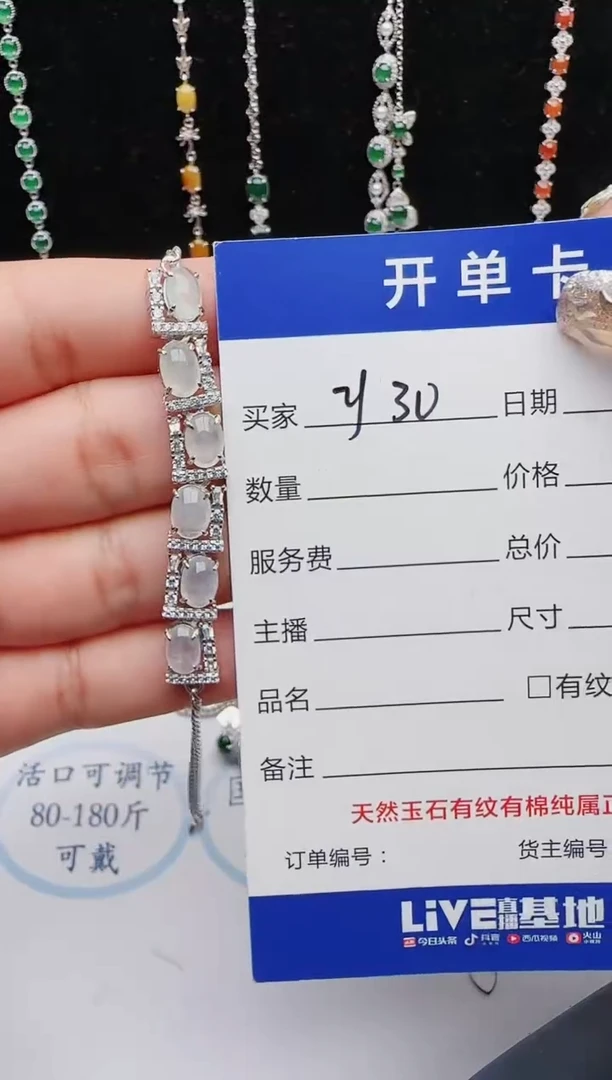 开单卡
买家 y 30 日期
数量 价格
服务费 总价
主播 尺寸
品名 □有纹
备注
天然玉石有纹有棉纯属正
订单编号： 货主编号
LiVE直播基地
今日头条 抖音 西瓜视频 火山
活口可调节
80-180斤
可戴